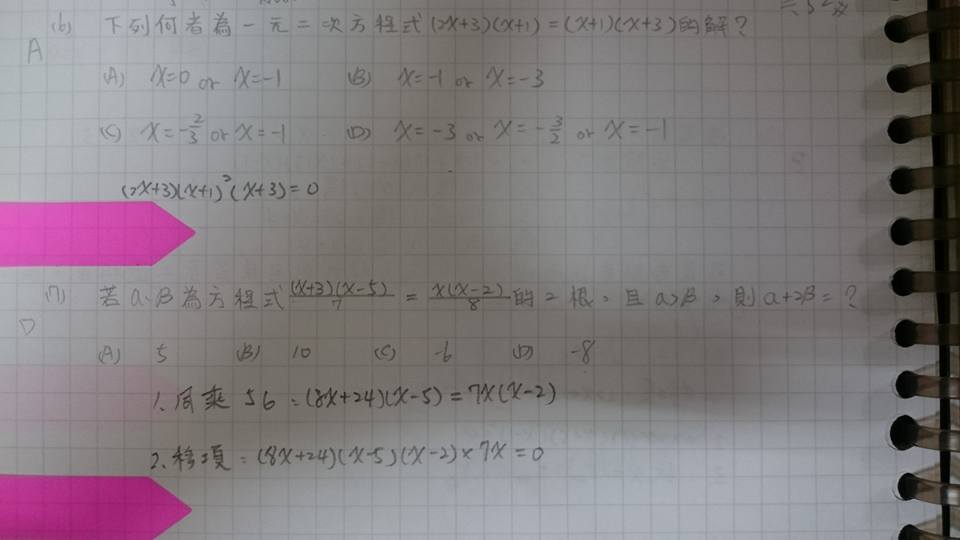 (6) 下列何者為一元二次方程式(2x+3)(x+1)=(x+1)(x+3)的解?
A
(A) x=0 or x=-1 (B) x=-1 or x=-3
(C) x=-2/3 or x=-1 (D) x=-3 or x=-3/2 or x=-1
(2x+3)(x+1)²(x+3)=0
(7) 若α、β為方程式(x+3)(x-5)/7=x(x-2)/8的2根,且α>β,則α+2β=?
D
(A) 5 (B) 10 (C) -6 (D) -8
1.同乘56:(8x+24)(x-5)=7x(x-2)
2.移項:(8x+24)(x-5)(x-2)×7x=0